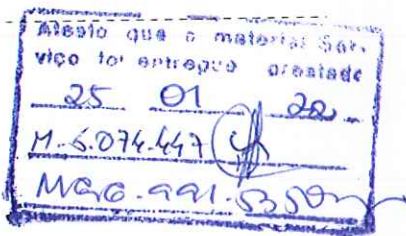 Atesto que o material Ser-
viço foi entregue prestado
25 01 22
M-5.074.447